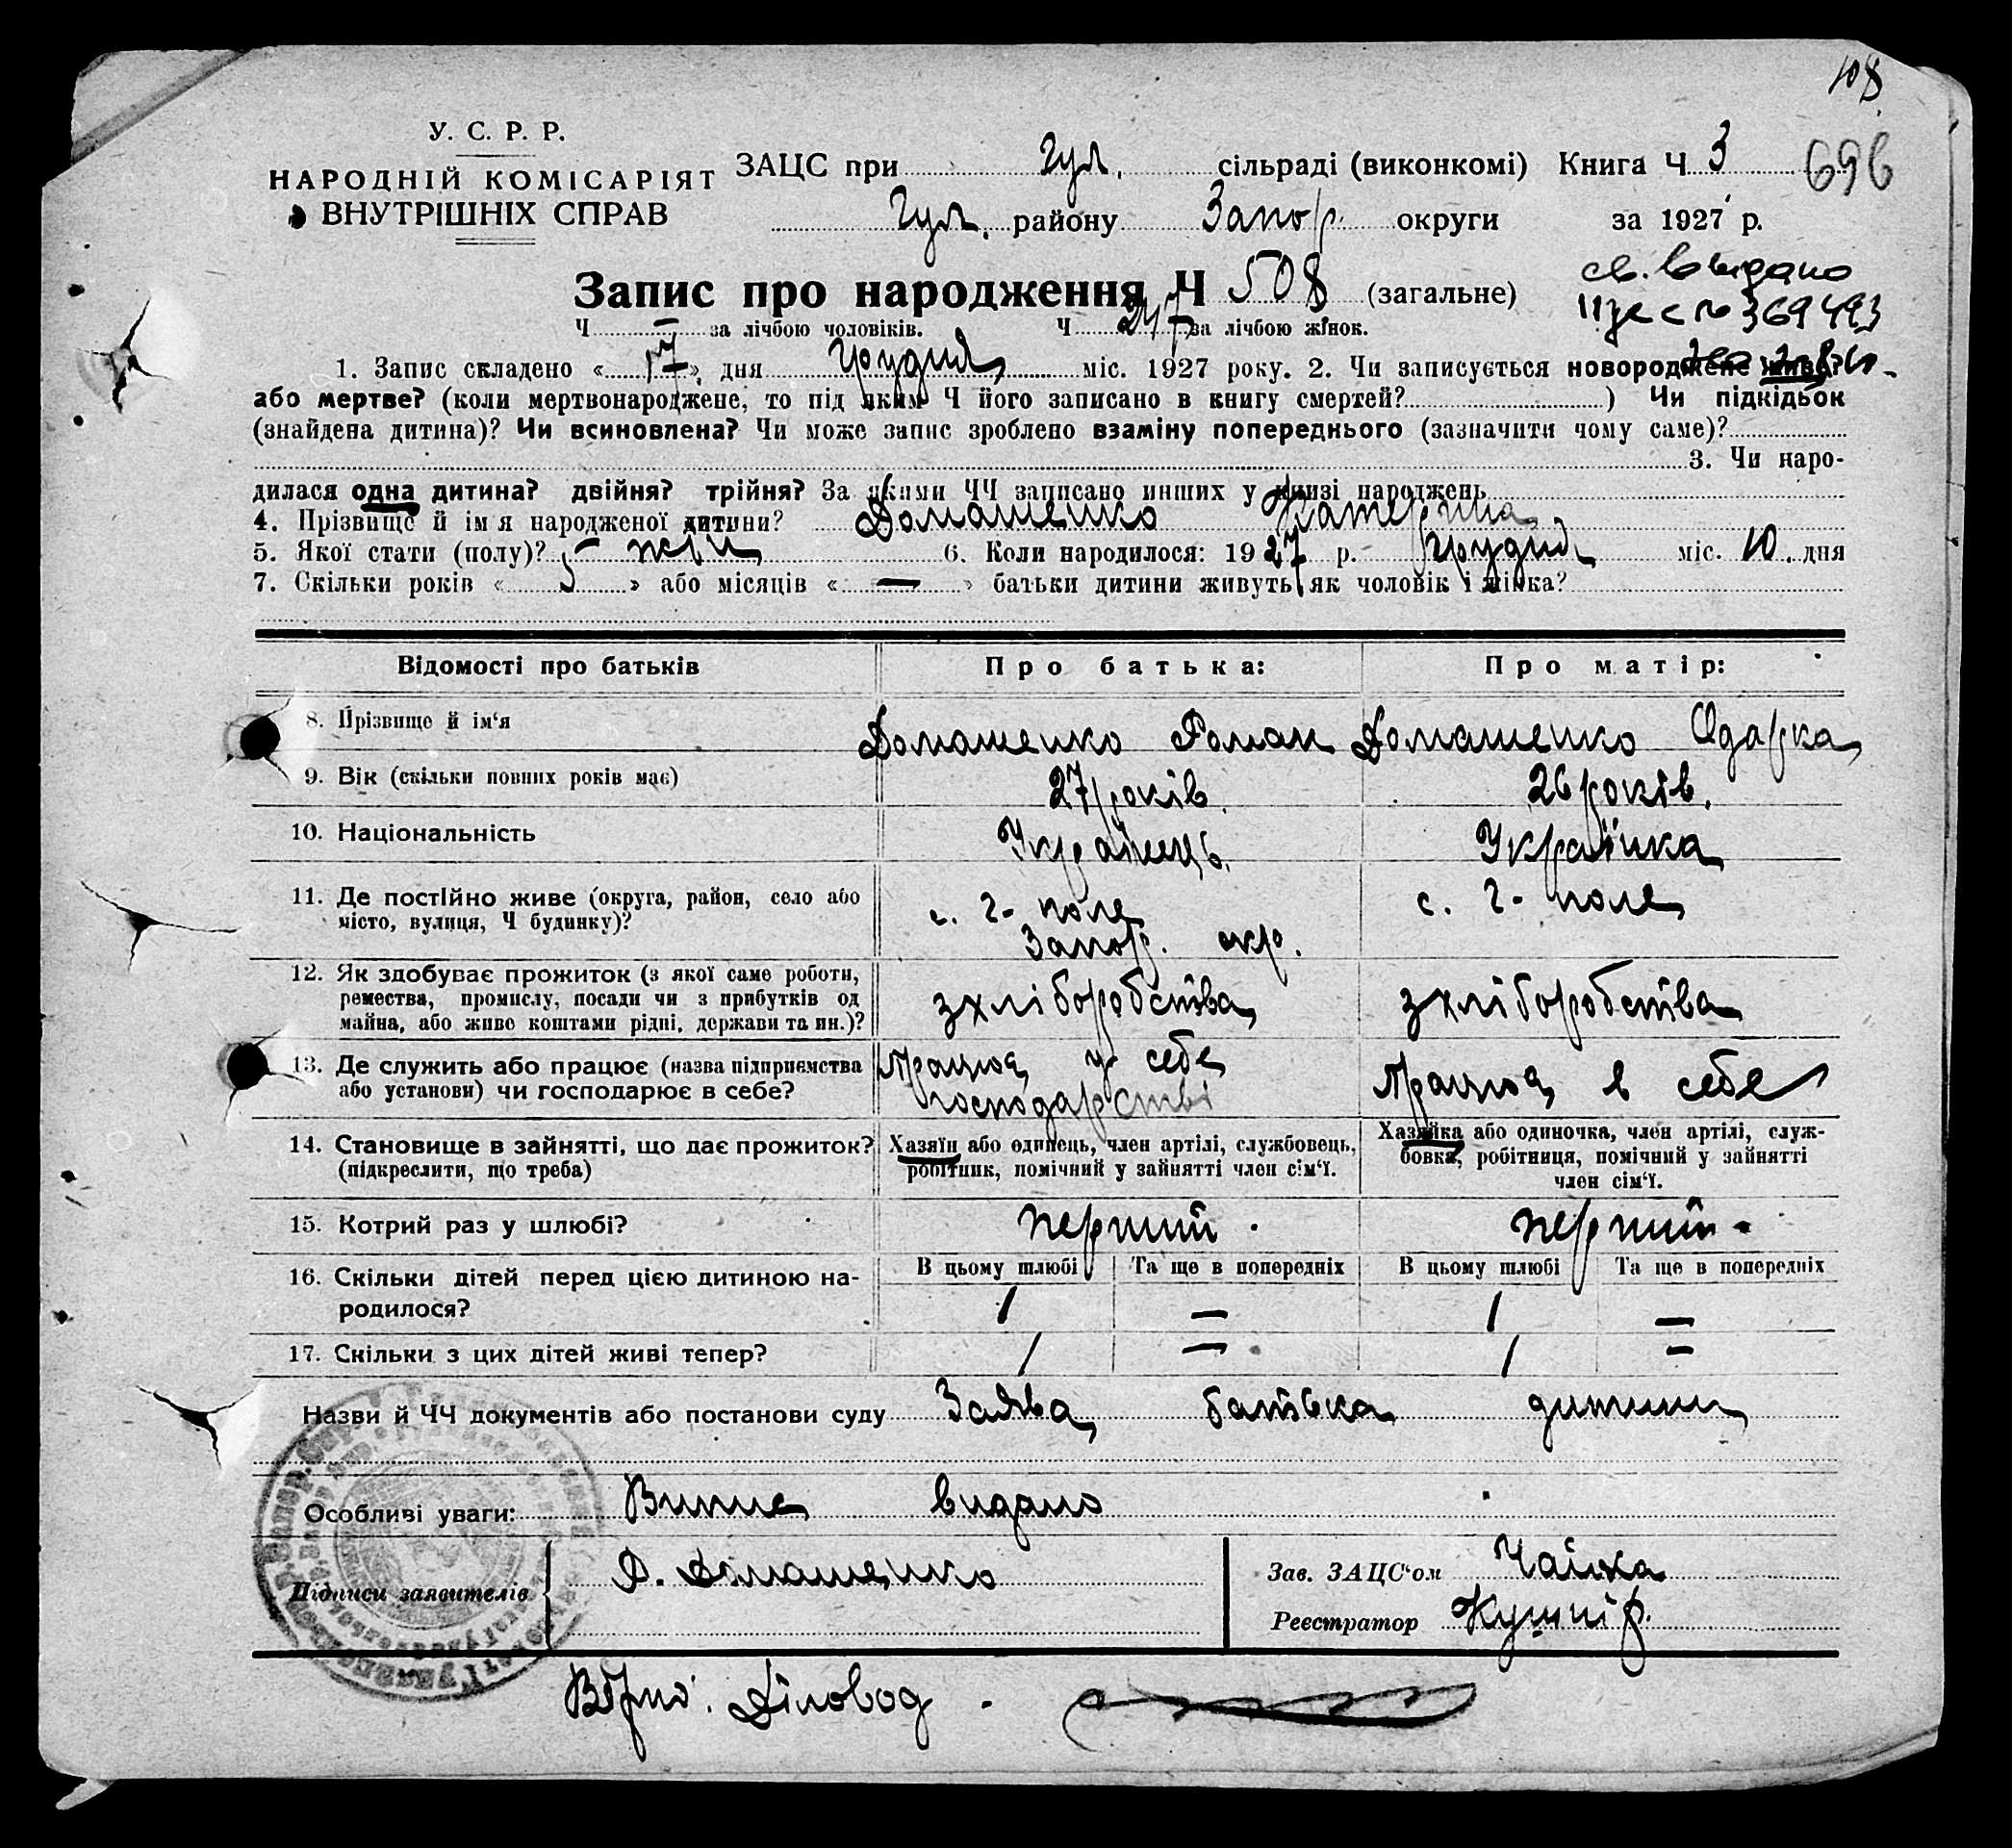 108
У. С. Р. Р.
НАРОДНІЙ КОМІСАРІЯТ
ВНУТРІШНІХ СПРАВ
ЗАЦС при Гул. сільраді (виконкомі) Книга Ч 3
696
Гул. району Запор. округи за 1927 р.
Запис про народження Ч 508 (загальне)
св. видано
369493
Ч — за лічбою чоловіків. Ч 247 за лічбою жінок.
1. Запис складено « 17 » дня грудня міс. 1927 року. 2. Чи записується новороджене живе?
або мертве? (коли мертвонароджене, то під яким Ч його записано в книгу смертей? ) Чи підкідьок
(знайдена дитина)? Чи всиновлена? Чи може запис зроблено взаміну попереднього (зазначити чому саме)?
3. Чи наро-
дилася одна дитина? двійня? трійня? За якими ЧЧ записано инших у книзі народжень
4. Прізвище й ім я народженої дитини? Домашенко Катерина
5. Якої стати (полу)? жін 6. Коли народилося: 1927 р. грудня міс. 10 дня
7. Скільки років « 5 » або місяців « — » батьки дитини живуть як чоловік і жінка?
Відомості про батьків Про батька: Про матір:
8. Прізвище й ім‘я Домашенко Роман Домашенко Одарка
9. Вік (скільки повних років має) 27 років. 26 років.
10. Національність Українець. Українка
11. Де постійно живе (округа, район, село або місто, вулиця, Ч будинку)? с. Г-поле Запор. окр. с. Г-поле
12. Як здобуває прожиток (з якої саме роботи, ремества, промислу, посади чи з прибутків од майна, або живе коштами рідні, держави та ин.)? з хліборобства з хліборобства
13. Де служить або працює (назва підприємства або установи) чи господарює в себе? Працює у себе господарстві Працює в себе
14. Становище в зайнятті, що дає прожиток? (підкреслити, що треба)
Хазяїн або одинець, член артілі, службовець, робітник, помічний у зайнятті член сім‘ї.
Хазяйка або одиночка, член артілі, служ-
бовка, робітниця, помічний у зайнятті
член сім‘ї.
15. Котрий раз у шлюбі? перший. перший.
16. Скільки дітей перед цією дитиною на-
родилося?
В цьому шлюбі Та ще в попередніх В цьому шлюбі Та ще в попередніх
1 — 1 —
17. Скільки з цих дітей живі тепер? 1 — 1 —
Назви й ЧЧ документів або постанови суду Заява батька дитини
Особливі уваги: Випис видано
Підписи заявителів Р. Домашенко
Зав. ЗАЦС‘ом Чайка
Реєстратор Кушнір.
Вірно: Діловод